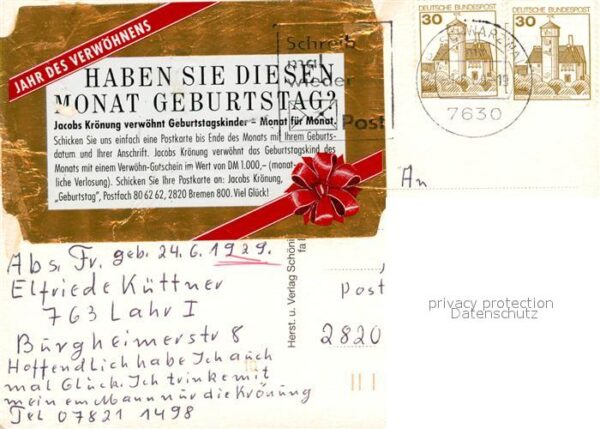 JAHR DES VERWÖHNENS
HABEN SIE DIESEN
MONAT GEBURTSTAG?
Jacobs Krönung verwöhnt Geburtstagskinder – Monat für Monat.
Schicken Sie uns einfach eine Postkarte bis Ende des Monats mit Ihrem Geburts-
datum und Ihrer Anschrift. Jacobs Krönung verwöhnt das Geburtstagskind des
Monats mit einem Verwöhn-Gutschein im Wert von DM 1.000,– (monat-
liche Verlosung). Schicken Sie Ihre Postkarte an: Jacobs Krönung,
„Geburtstag", Postfach 80 62 62, 2820 Bremen 800. Viel Glück!
Schreib
mal
wieder
Post
30
DEUTSCHE BUNDESPOST
30
DEUTSCHE BUNDESPOST
7630
An
Abs. Fr. geb. 24.6.1929.
Elfriede Küttner
763 Lahr I
Burgheimerstr 8
Hoffendlich habe Ich auch
mal Glück. Ich trinke mit
mein em Mann nur die Krönung
Tel 07821 1498
Herst. u. Verlag Schöni
Post
2820
privacy protection
Datenschutz